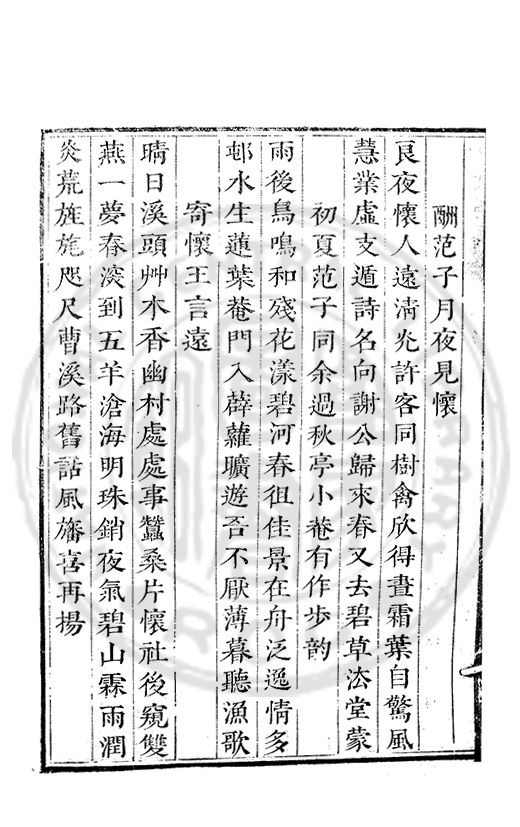 酬范子月夜見懷
良夜懷人遠淸光許客同樹禽欣得晝霜葉自驚風
慧業虛支遁詩名向謝公歸來春又去碧草法堂蒙
初夏范子同余過秋亭小菴有作步韵
雨後鳥鳴和殘花漾碧河春徂佳景在舟泛逸情多
邨水生蓮葉菴門入薜蘿曠遊吾不厭薄暮聽漁歌
寄懷王言遠
晴日溪頭艸木香幽村處處事蠶桑片懷社後窺雙
燕一夢春深到五羊滄海明珠銷夜氣碧山霖雨潤
炎荒旌旄咫尺曹溪路舊話風旛喜再揚